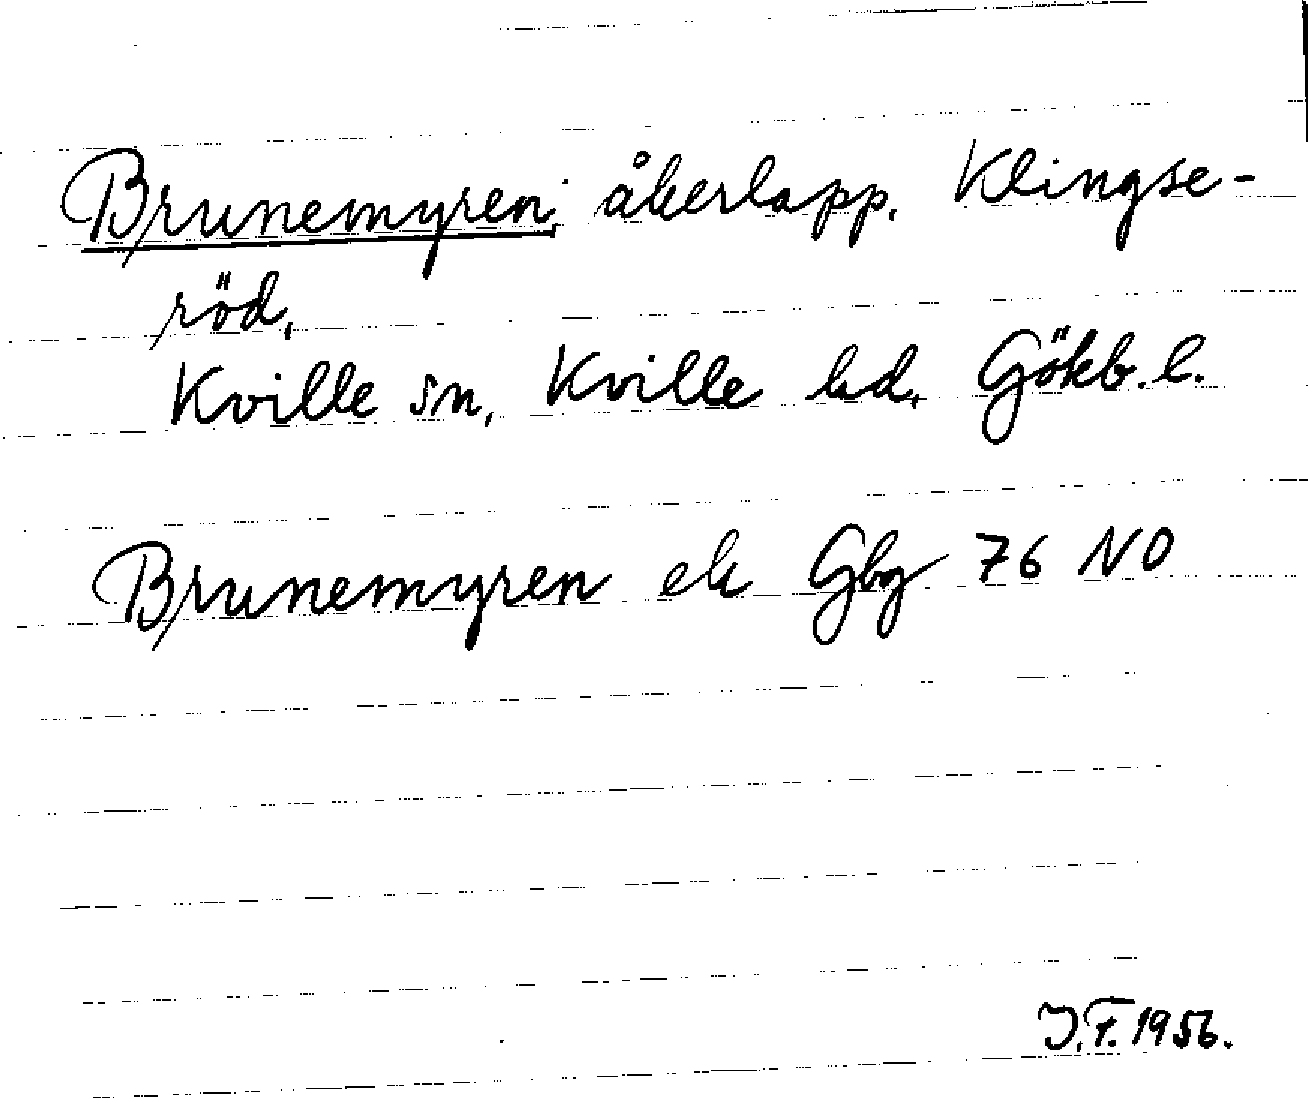 Brunemyren: åkerlapp. Klingse-
röd,
Kville sn, Kville hd, Gökb. l.
Brunemyren ek Gbg 76 NO
J.F. 1956.